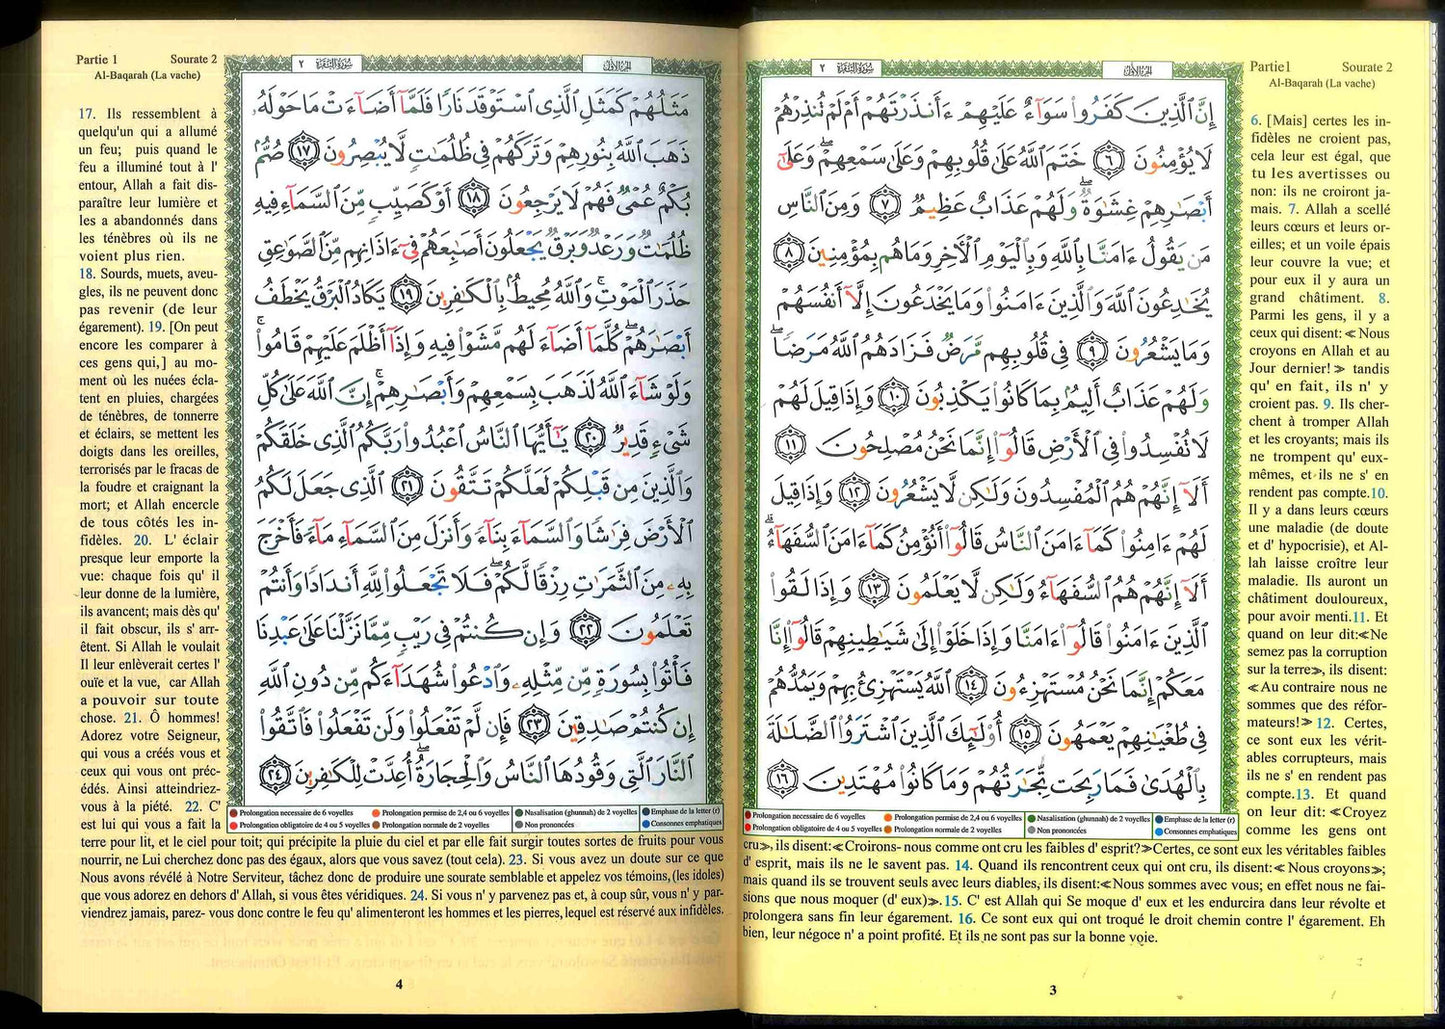 Partie1 Sourate 2
Al-Baqarah (La vache)
سورة البقرة ٢
الجزء الأول
إِنَّ ٱلَّذِينَ كَفَرُوا۟ سَوَآءٌ عَلَيْهِمْ ءَأَنذَرْتَهُمْ أَمْ لَمْ تُنذِرْهُمْ
لَا يُؤْمِنُونَ ٦ خَتَمَ ٱللَّهُ عَلَىٰ قُلُوبِهِمْ وَعَلَىٰ سَمْعِهِمْ ۖ وَعَلَىٰٓ
أَبْصَٰرِهِمْ غِشَٰوَةٌ ۖ وَلَهُمْ عَذَابٌ عَظِيمٌ ٧ وَمِنَ ٱلنَّاسِ
مَن يَقُولُ ءَامَنَّا بِٱللَّهِ وَبِٱلْيَوْمِ ٱلْءَاخِرِ وَمَا هُم بِمُؤْمِنِينَ ٨
يُخَٰدِعُونَ ٱللَّهَ وَٱلَّذِينَ ءَامَنُوا۟ وَمَا يَخْدَعُونَ إِلَّآ أَنفُسَهُمْ
وَمَا يَشْعُرُونَ ٩ فِى قُلُوبِهِم مَّرَضٌ فَزَادَهُمُ ٱللَّهُ مَرَضًا ۖ
وَلَهُمْ عَذَابٌ أَلِيمٌۢ بِمَا كَانُوا۟ يَكْذِبُونَ ١٠ وَإِذَا قِيلَ لَهُمْ
لَا تُفْسِدُوا۟ فِى ٱلْأَرْضِ قَالُوٓا۟ إِنَّمَا نَحْنُ مُصْلِحُونَ ١١
أَلَآ إِنَّهُمْ هُمُ ٱلْمُفْسِدُونَ وَلَٰكِن لَّا يَشْعُرُونَ ١٢ وَإِذَا قِيلَ
لَهُمْ ءَامِنُوا۟ كَمَآ ءَامَنَ ٱلنَّاسُ قَالُوٓا۟ أَنُؤْمِنُ كَمَآ ءَامَنَ ٱلسُّفَهَآءُ ۗ
أَلَآ إِنَّهُمْ هُمُ ٱلسُّفَهَآءُ وَلَٰكِن لَّا يَعْلَمُونَ ١٣ وَإِذَا لَقُوا۟
ٱلَّذِينَ ءَامَنُوا۟ قَالُوٓا۟ ءَامَنَّا وَإِذَا خَلَوْا۟ إِلَىٰ شَيَٰطِينِهِمْ قَالُوٓا۟ إِنَّا
مَعَكُمْ إِنَّمَا نَحْنُ مُسْتَهْزِءُونَ ١٤ ٱللَّهُ يَسْتَهْزِئُ بِهِمْ وَيَمُدُّهُمْ
فِى طُغْيَٰنِهِمْ يَعْمَهُونَ ١٥ أُو۟لَٰٓئِكَ ٱلَّذِينَ ٱشْتَرَوُا۟ ٱلضَّلَٰلَةَ
بِٱلْهُدَىٰ فَمَا رَبِحَت تِّجَٰرَتُهُمْ وَمَا كَانُوا۟ مُهْتَدِينَ ١٦
Prolongation nécessaire de 6 voyelles Prolongation permise de 2,4 ou 6 voyelles Nasalisation (ghunnah) de 2 voyelles Emphase de la letter (r)
Prolongation obligatoire de 4 ou 5 voyelles Prolongation normale de 2 voyelles Non prononcées Consonnes emphatiques
6. [Mais] certes les in-
fidèles ne croient pas,
cela leur est égal, que
tu les avertisses ou
non: ils ne croiront ja-
mais. 7. Allah a scellé
leurs cœurs et leurs or-
eilles; et un voile épais
leur couvre la vue; et
pour eux il y aura un
grand châtiment. 8.
Parmi les gens, il y a
ceux qui disent: ≪ Nous
croyons en Allah et au
Jour dernier! ≫ tandis
qu' en fait, ils n' y
croient pas. 9. Ils cher-
chent à tromper Allah
et les croyants; mais ils
ne trompent qu' eux-
mêmes, et ils ne s' en
rendent pas compte.10.
Il y a dans leurs cœurs
une maladie (de doute
et d' hypocrisie), et Al-
lah laisse croître leur
maladie. Ils auront un
châtiment douloureux,
pour avoir menti.11. Et
quand on leur dit:≪Ne
semez pas la corruption
sur la terre≫, ils disent:
≪Au contraire nous ne
sommes que des réfor-
mateurs!≫ 12. Certes,
ce sont eux les vérit-
ables corrupteurs, mais
ils ne s' en rendent pas
compte.13. Et quand
on leur dit: ≪Croyez
comme les gens ont
cru≫, ils disent:≪Croirons- nous comme ont cru les faibles d' esprit?≫Certes, ce sont eux les véritables faibles
d' esprit, mais ils ne le savent pas. 14. Quand ils rencontrent ceux qui ont cru, ils disent:≪ Nous croyons≫;
mais quand ils se trouvent seuls avec leurs diables, ils disent:≪Nous sommes avec vous; en effet nous ne fai-
sions que nous moquer (d' eux)≫.15. C' est Allah qui Se moque d' eux et les endurcira dans leur révolte et
prolongera sans fin leur égarement. 16. Ce sont eux qui ont troqué le droit chemin contre l' égarement. Eh
bien, leur négoce n' a point profité. Et ils ne sont pas sur la bonne voie.
3
Partie 1 Sourate 2
Al-Baqarah (La vache)
سورة البقرة ٢
الجزء الأول
مَثَلُهُمْ كَمَثَلِ ٱلَّذِى ٱسْتَوْقَدَ نَارًا فَلَمَّآ أَضَآءَتْ مَا حَوْلَهُۥ
ذَهَبَ ٱللَّهُ بِنُورِهِمْ وَتَرَكَهُمْ فِى ظُلُمَٰتٍ لَّا يُبْصِرُونَ ١٧ صُمٌّۢ
بُكْمٌ عُمْىٌ فَهُمْ لَا يَرْجِعُونَ ١٨ أَوْ كَصَيِّبٍ مِّنَ ٱلسَّمَآءِ فِيهِ
ظُلُمَٰتٌ وَرَعْدٌ وَبَرْقٌ يَجْعَلُونَ أَصَٰبِعَهُمْ فِىٓ ءَاذَانِهِم مِّنَ ٱلصَّوَٰعِقِ
حَذَرَ ٱلْمَوْتِ ۚ وَٱللَّهُ مُحِيطٌۢ بِٱلْكَٰفِرِينَ ١٩ يَكَادُ ٱلْبَرْقُ يَخْطَفُ
أَبْصَٰرَهُمْ ۖ كُلَّمَآ أَضَآءَ لَهُم مَّشَوْا۟ فِيهِ وَإِذَآ أَظْلَمَ عَلَيْهِمْ قَامُوا۟ ۚ
وَلَوْ شَآءَ ٱللَّهُ لَذَهَبَ بِسَمْعِهِمْ وَأَبْصَٰرِهِمْ ۚ إِنَّ ٱللَّهَ عَلَىٰ كُلِّ
شَىْءٍ قَدِيرٌ ٢٠ يَٰٓأَيُّهَا ٱلنَّاسُ ٱعْبُدُوا۟ رَبَّكُمُ ٱلَّذِى خَلَقَكُمْ
وَٱلَّذِينَ مِن قَبْلِكُمْ لَعَلَّكُمْ تَتَّقُونَ ٢١ ٱلَّذِى جَعَلَ لَكُمُ
ٱلْأَرْضَ فِرَٰشًا وَٱلسَّمَآءَ بِنَآءً وَأَنزَلَ مِنَ ٱلسَّمَآءِ مَآءً فَأَخْرَجَ
بِهِۦ مِنَ ٱلثَّمَرَٰتِ رِزْقًا لَّكُمْ ۖ فَلَا تَجْعَلُوا۟ لِلَّهِ أَندَادًا وَأَنتُمْ
تَعْلَمُونَ ٢٢ وَإِن كُنتُمْ فِى رَيْبٍ مِّمَّا نَزَّلْنَا عَلَىٰ عَبْدِنَا
فَأْتُوا۟ بِسُورَةٍ مِّن مِّثْلِهِۦ وَٱدْعُوا۟ شُهَدَآءَكُم مِّن دُونِ ٱللَّهِ
إِن كُنتُمْ صَٰدِقِينَ ٢٣ فَإِن لَّمْ تَفْعَلُوا۟ وَلَن تَفْعَلُوا۟ فَٱتَّقُوا۟
ٱلنَّارَ ٱلَّتِى وَقُودُهَا ٱلنَّاسُ وَٱلْحِجَارَةُ ۖ أُعِدَّتْ لِلْكَٰفِرِينَ ٢٤
Prolongation nécessaire de 6 voyelles Prolongation permise de 2,4 ou 6 voyelles Nasalisation (ghunnah) de 2 voyelles Emphase de la letter (r)
Prolongation obligatoire de 4 ou 5 voyelles Prolongation normale de 2 voyelles Non prononcées Consonnes emphatiques
17. Ils ressemblent à
quelqu'un qui a allumé
un feu; puis quand le
feu a illuminé tout à l'
entour, Allah a fait dis-
paraître leur lumière et
les a abandonnés dans
les ténèbres où ils ne
voient plus rien.
18. Sourds, muets, aveu-
gles, ils ne peuvent donc
pas revenir (de leur
égarement). 19. [On peut
encore les comparer à
ces gens qui,] au mo-
ment où les nuées écla-
tent en pluies, chargées
de ténèbres, de tonnerre
et éclairs, se mettent les
doigts dans les oreilles,
terrorisés par le fracas de
la foudre et craignant la
mort; et Allah encercle
de tous côtés les in-
fidèles. 20. L' éclair
presque leur emporte la
vue: chaque fois qu' il
leur donne de la lumière,
ils avancent; mais dès qu'
il fait obscur, ils s' arr-
êtent. Si Allah le voulait
Il leur enlèverait certes l'
ouïe et la vue, car Allah
a pouvoir sur toute
chose. 21. Ô hommes!
Adorez votre Seigneur,
qui vous a créés vous et
ceux qui vous ont préc-
édés. Ainsi atteindriez-
vous à la piété. 22. C'
est lui qui vous a fait la
terre pour lit, et le ciel pour toit; qui précipite la pluie du ciel et par elle fait surgir toutes sortes de fruits pour vous
nourrir, ne Lui cherchez donc pas des égaux, alors que vous savez (tout cela). 23. Si vous avez un doute sur ce que
Nous avons révélé à Notre Serviteur, tâchez donc de produire une sourate semblable et appelez vos témoins, (les idoles)
que vous adorez en dehors d' Allah, si vous êtes véridiques. 24. Si vous n' y parvenez pas et, à coup sûr, vous n' y par-
viendrez jamais, parez- vous donc contre le feu qu' alimenteront les hommes et les pierres, lequel est réservé aux infidèles.
4